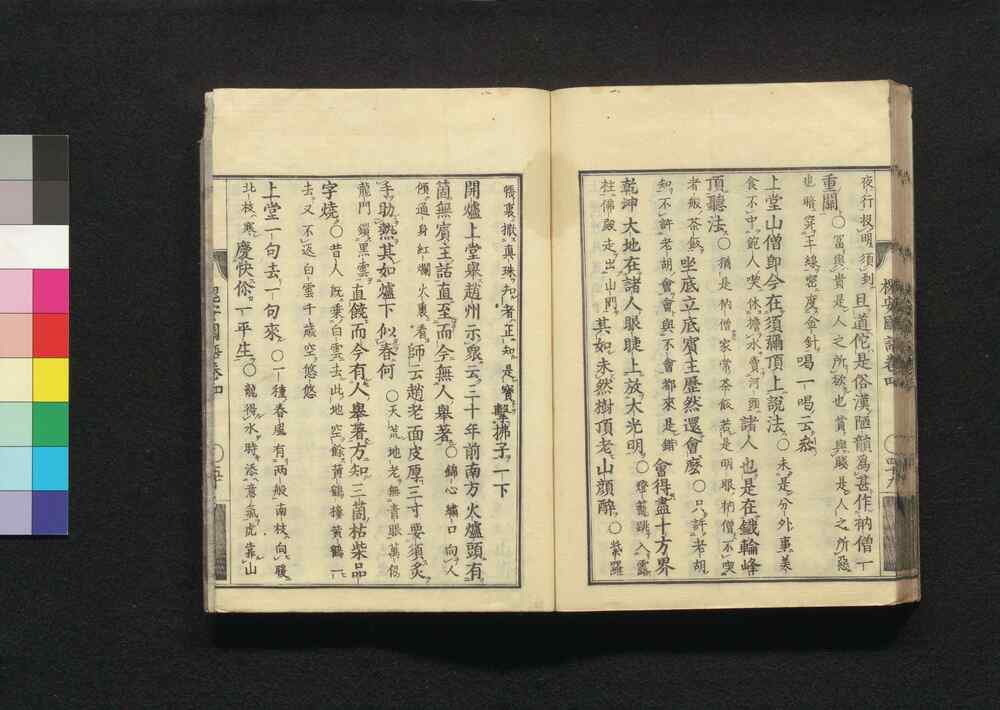 夜行投明須到。且道佗是俗漢陋韻爲甚作衲僧一
重關。○富與貴是人之所欲也貧與賤是人之所惡
也暗穿玉線密度金針。喝一喝云參
上堂山僧卽今在須彌頂上說法。○未是分外事美
食不中飽人喫休擔水賣河頭諸人也是在鐵輪峰
頂聽法。○猶是衲僧家常茶飯若是明眼衲僧不喫
者般茶飯坐底立底賓主歷然還會麽○只許老胡
知不許老胡會會與不會都來是錯會得盡十方界
乾坤大地在諸人眼睫上放大光明。○燈籠跳入露
柱佛殿走出山門其如未然樹頂老山顏醉。○紫羅
槐安國語卷四 ○四十九
帳裏撒真珠知者正知是寶擊拂子一下
開爐上堂擧趙州示衆云三十年前南方火爐頭有
箇無賓主話直至而今無人擧著○錦心繡口向人
傾通身紅爛火裏看師云趙老面皮厚三寸要須炙
手助熱其如爐下似春何○天荒地老無青眼萬仭
龍門鎖黑雲直饒而今有人擧著方知三箇枯柴品
字燒。○昔人旣乘白雲去此地空餘黃鶴樓黃鶴一
去又不返白雲千歲空悠悠
上堂一句去一句來。○一種春風有兩般南枝向暖
北枝寒慶快俗一平生。○龍得水時添意氣虎靠山
槐安國語卷四 ○五十